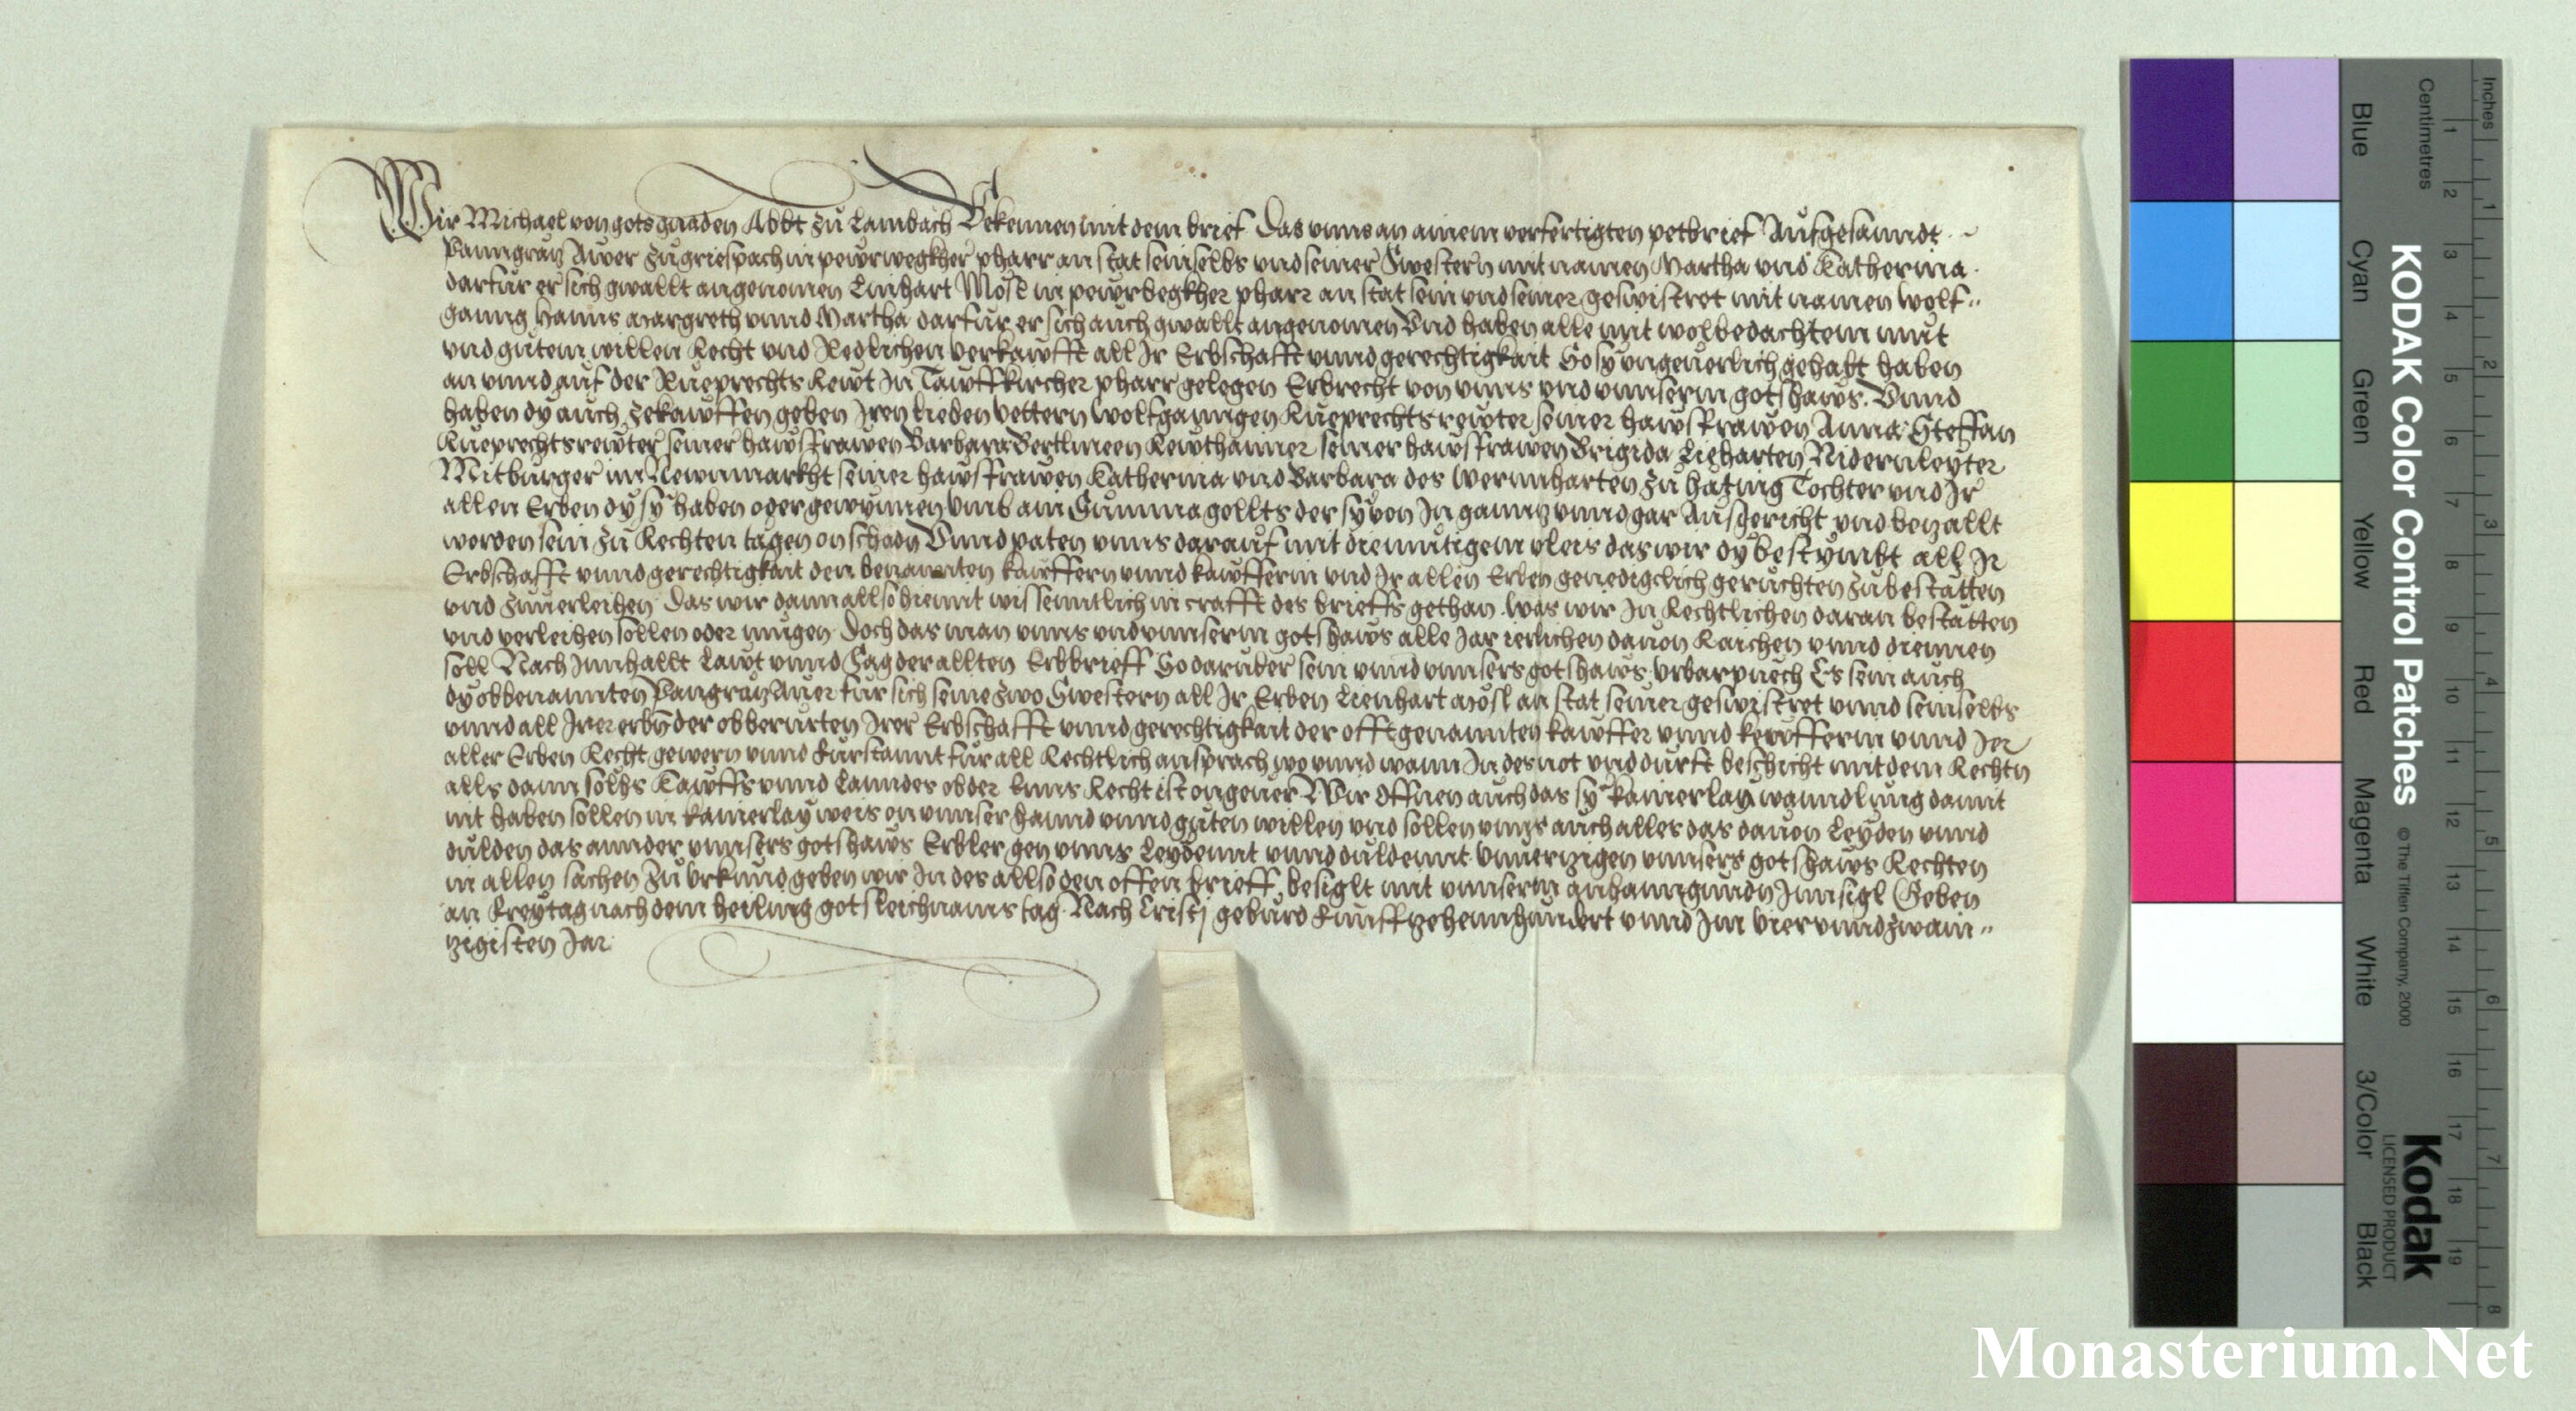 Wir Michael von gots gnaden Abbt zů Lambach Bekennen mit dem brief Das vnns an ainem verfertigten petbrief Aufgesanndt
Panngrätz Awer zů griespach in pewrwegkher pharr an stat sein selbs vnd seiner Swestern mit namen Martha vnd Katherina
darfür er sich gwallt angenomen Linhart Mösl in pewrbegkher pharr an stat sein vnd seiner geswistret mit namen Wolf„
ganng Hanns Margreth vnnd Martha darfür er sich auch gwallt angenomen Vnd haben alle mit wolbedachtem můt
vnd gůtem willen Recht vnd Redlichen verkawfft all Ir Erbschafft vnnd gerechtigkait So sy vngeuerlich gehabt haben
an vnnd auf der Rueprechts Rewt In Tawffkircher pharr gelegen Erbrecht von vnns vnd vnnserm gotshaws. Vnnd
haben dy auch zekawffen geben Iren lieben vettern Wolfganngen Rueprechtsrewter seiner hawsfrawen Anna Steffan
Rueprechtsrewter seiner hawsfrawen Barbara Bertlmeen Rewthamer seiner hawsfrawen Brigida Lieharten Nidernleyter
Mitburger im Newnmarkht seiner hawsfrawen Katherina vnd Barbara des Wernnharten zů hating Tochter vnd Ir
allen Erben dy sy haben oder gewynnen Vmb ain Summa gellts der sy von In ganntz vnnd gar Ausgericht vnd betzallt
worden sein zů Rechten tagen on schadn Vnnd paten vnns darauf mit diemutigem vleis das wir dy bestymbt all Ir
Erbschafft vnnd gerechtigkait den benannten kawffern vnnd kawfferin vnd Ir allen Erben genedigclich geruchten zů bestätten
vnd zůuerleihen Das wir dann allso hiemit wissenntlich in crafft des brieffs gethan. Was wir In Rechtlichen daran bestätten
vnd verleihen sollen oder mugen Doch das man vnns vnd vnnserm gotshaws alle Jar ierlichen dauon Raichen vnnd diennen
soll Nach Innhallt Lawt vnnd Sag der allten Erbbrieff So daruber sein vnnd vnnsers gotshaws Vrbarpuech Es sein auch
dy obbenannten Pangrätz Auer für sich seine zwo Swestern all Ir Erben Lienhart Mösl an stat seiner geswistret vnnd sein selbs
vnnd all Irer erbn der obberurten Irer Erbschafft vnnd gerechtigkait der offtgenannten kawffer vnnd kewfferin vnnd Irer
aller Erben Recht gewern vnnd fürstannt für all Rechtlich ansprach wo vnnd wann In des not vnd durft beschicht mit dem Rechtn
alls dann solhs Kawffs vnnd Lanndes ob der Enns Recht ist ongeuer Wir öffnen auch das sy kainerlay wanndlung damit
nit haben sollen in kainerlay weis on vnnser hannd vnnd gůten willen vnd sollen vnns auch alles das dauon Leyden vnnd
dulden das annder vnnsers gotshaws Erbler gen vnns Leydennt vnnd duldennt. Vnuertzigen vnnsers gotshaws Rechten
in allen sachen Zů Vrkůnd geben wir In des allso den offen brieff besiglt mit vnnserm anhanngundn Innsigl Geben
an Freytag nach dem heiling gotsleichnams tag. Nach Cristj geburd Funfftzehennhundert vnnd Im Viervnndzwain„
tzigisten Jar
KODAK Color Control Patches
© The Tiffen Company, 2000
Kodak
LICENSED PRODUCT
Inches
Centimetres
Blue
Cyan
Green
Yellow
Red
Magenta
White
3/Color
Black
1 2 3 4 5 6 7 8 9 10 11 12 13 14 15 16 17 18 19
1 2 3 4 5 6 7 8
Monasterium.Net